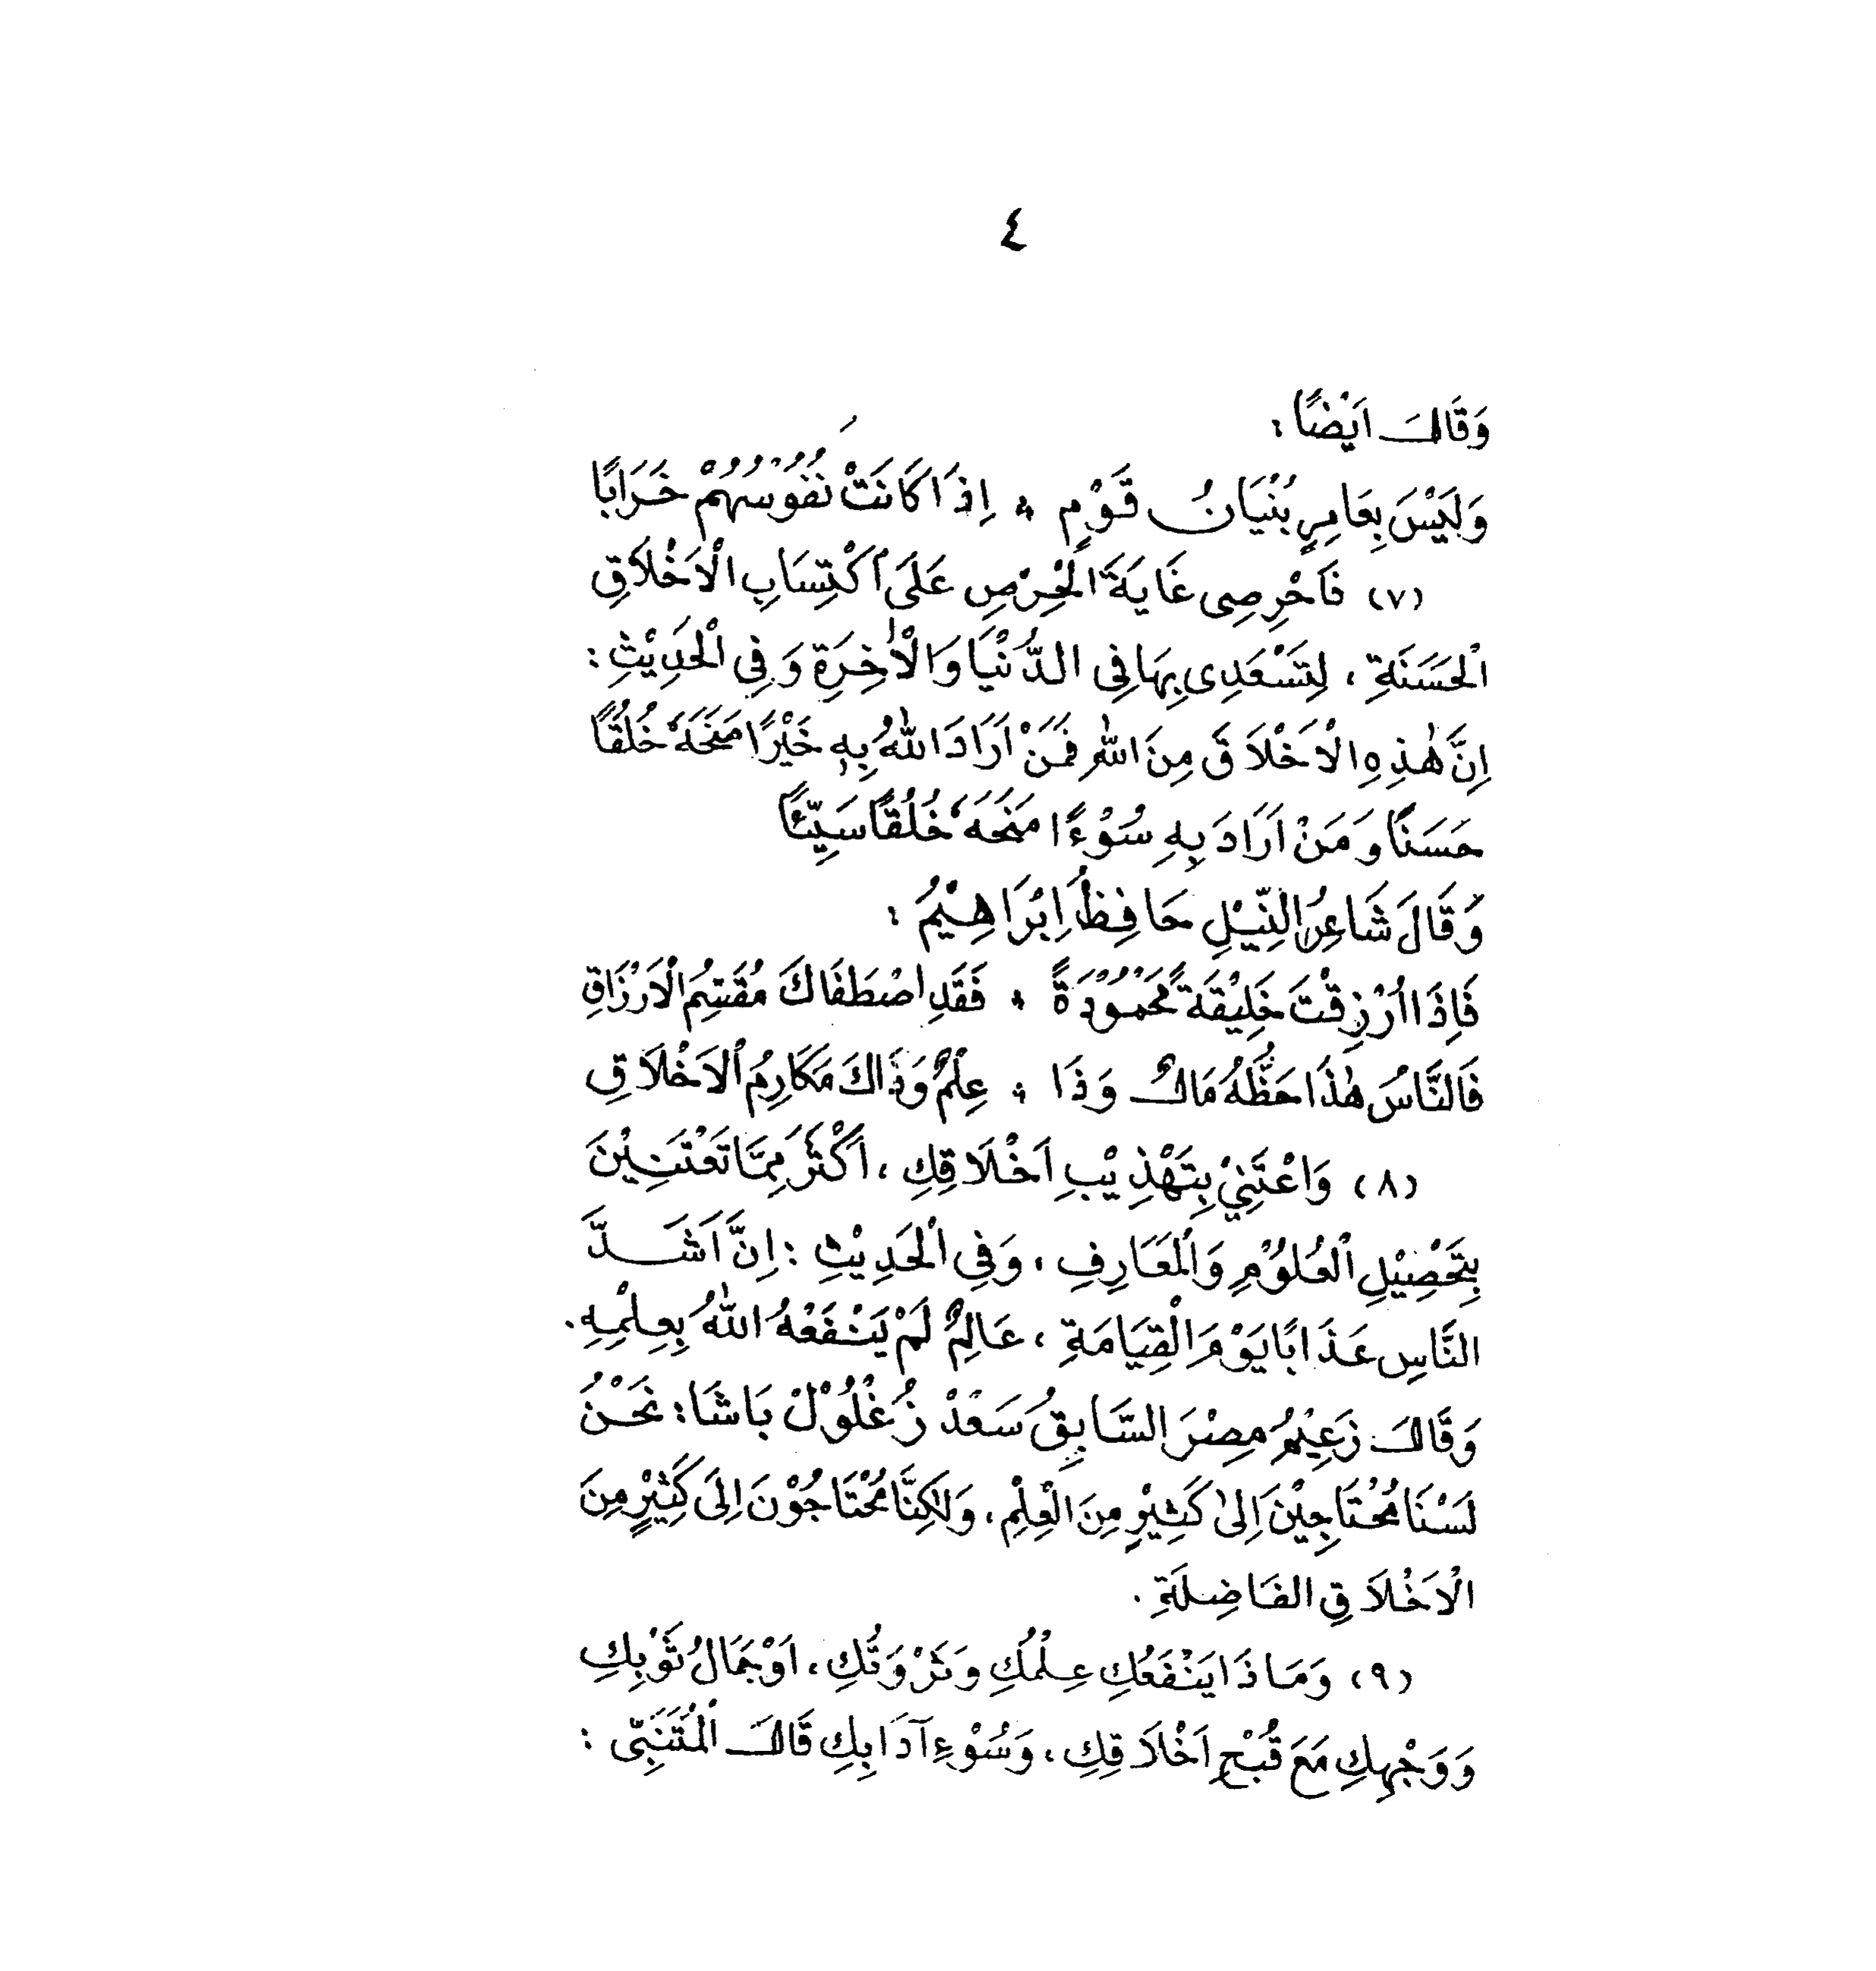 ٤
وَقَالَ اَيْضًا :
وَلَيْسَ بِعَامِرٍ بُنْيَانُ قَوْمٍ ؞ اِذَا كَانَتْ نُفُوْسُهُمْ خَرَابًا
(٧) فَاَحْرِصِى غَايَةَ الْحِرْصِ عَلَى اَكْتِسَابِ الْاَخْلَاقِ
الْحَسَنَةِ ، لِتَسْعَدِى بِهَا فِى الدُّنْيَا وَالْاٰخِرَةِ وَفِى الْحَدِيْثِ :
اِنَّ هٰذِهِ الْاَخْلَاقَ مِنَ اللّٰهِ فَمَنْ اَرَادَ اللّٰهُ بِهِ خَيْرًا مَنَحَهُ خُلُقًا
حَسَنًا وَمَنْ اَرَادَ بِهِ سُوْءًا مَنَحَهُ خُلُقًا سَيِّئًا
وَقَالَ شَاعِرُ النِّيْلِ حَافِظْ اِبْرَاهِيْمُ :
فَاِذَا ارُزِقْتَ خَلِيْقَةً مَحْمُوْدَةً ؞ فَقَدِ اصْطَفَاكَ مُقَسِّمُ الْاَرْزَاقِ
فَالنَّاسُ هٰذَا حَظُّهُ مَالٌ وَذَا ؞ عِلْمٌ وَذَاكَ مَكَارِمُ الْاَخْلَاقِ
(٨) وَاعْتَنِيْ بِتَهْذِيْبِ اَخْلَاقِكِ ، اَكْثَرَ مِمَّا تَعْتَنِيْنَ
بِتَحْصِيْلِ الْعُلُوْمِ وَالْمَعَارِفِ ، وَفِى الْحَدِيْثِ : اِنَّ اَشَدَّ
النَّاسِ عَذَابًا يَوْمَ الْقِيَامَةِ ، عَالِمٌ لَمْ يَنْفَعْهُ اللّٰهُ بِعِلْمِهِ .
وَقَالَ زَعِيْمُ مِصْرَ السَّابِقُ سَعَدْ زُغْلُوْلْ بَاشَا : نَحْنُ
لَسْنَا مُحْتَاجِيْنَ اِلىٰ كَثِيْرٍ مِنَ الْعِلْمِ ، وَلٰكِنَّا مُحْتَاجُوْنَ اِلَى كَثِيْرٍ مِنَ
الْاَخْلَاقِ الفَاضِلَةِ .
(٩) وَمَاذَا يَنْفَعُكِ عِلْمُكِ وَثَرْوَتُكِ ، اَوْجَمَالُ ثَوْبِكِ
وَوَجْهِكِ مَعَ قُبْحِ اَخْلَاقِكِ ، وَسُوْءِ آدَابِكِ قَالَ الْمُتَنَبِّى :